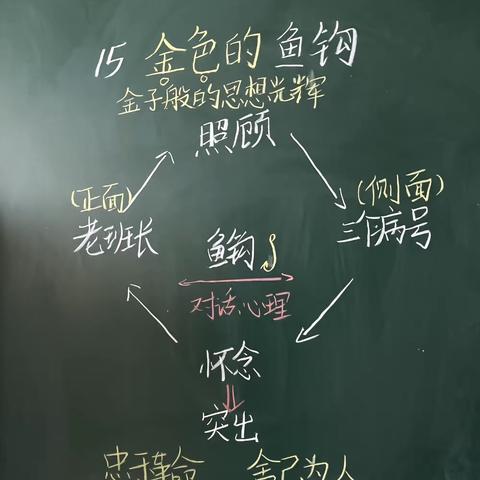 15 金色的鱼钩
金子般的思想光辉
照顾
(正面) (侧面)
老班长 鱼钩 三个病号
对话心理
怀念
突出
忠于革命 舍己为人